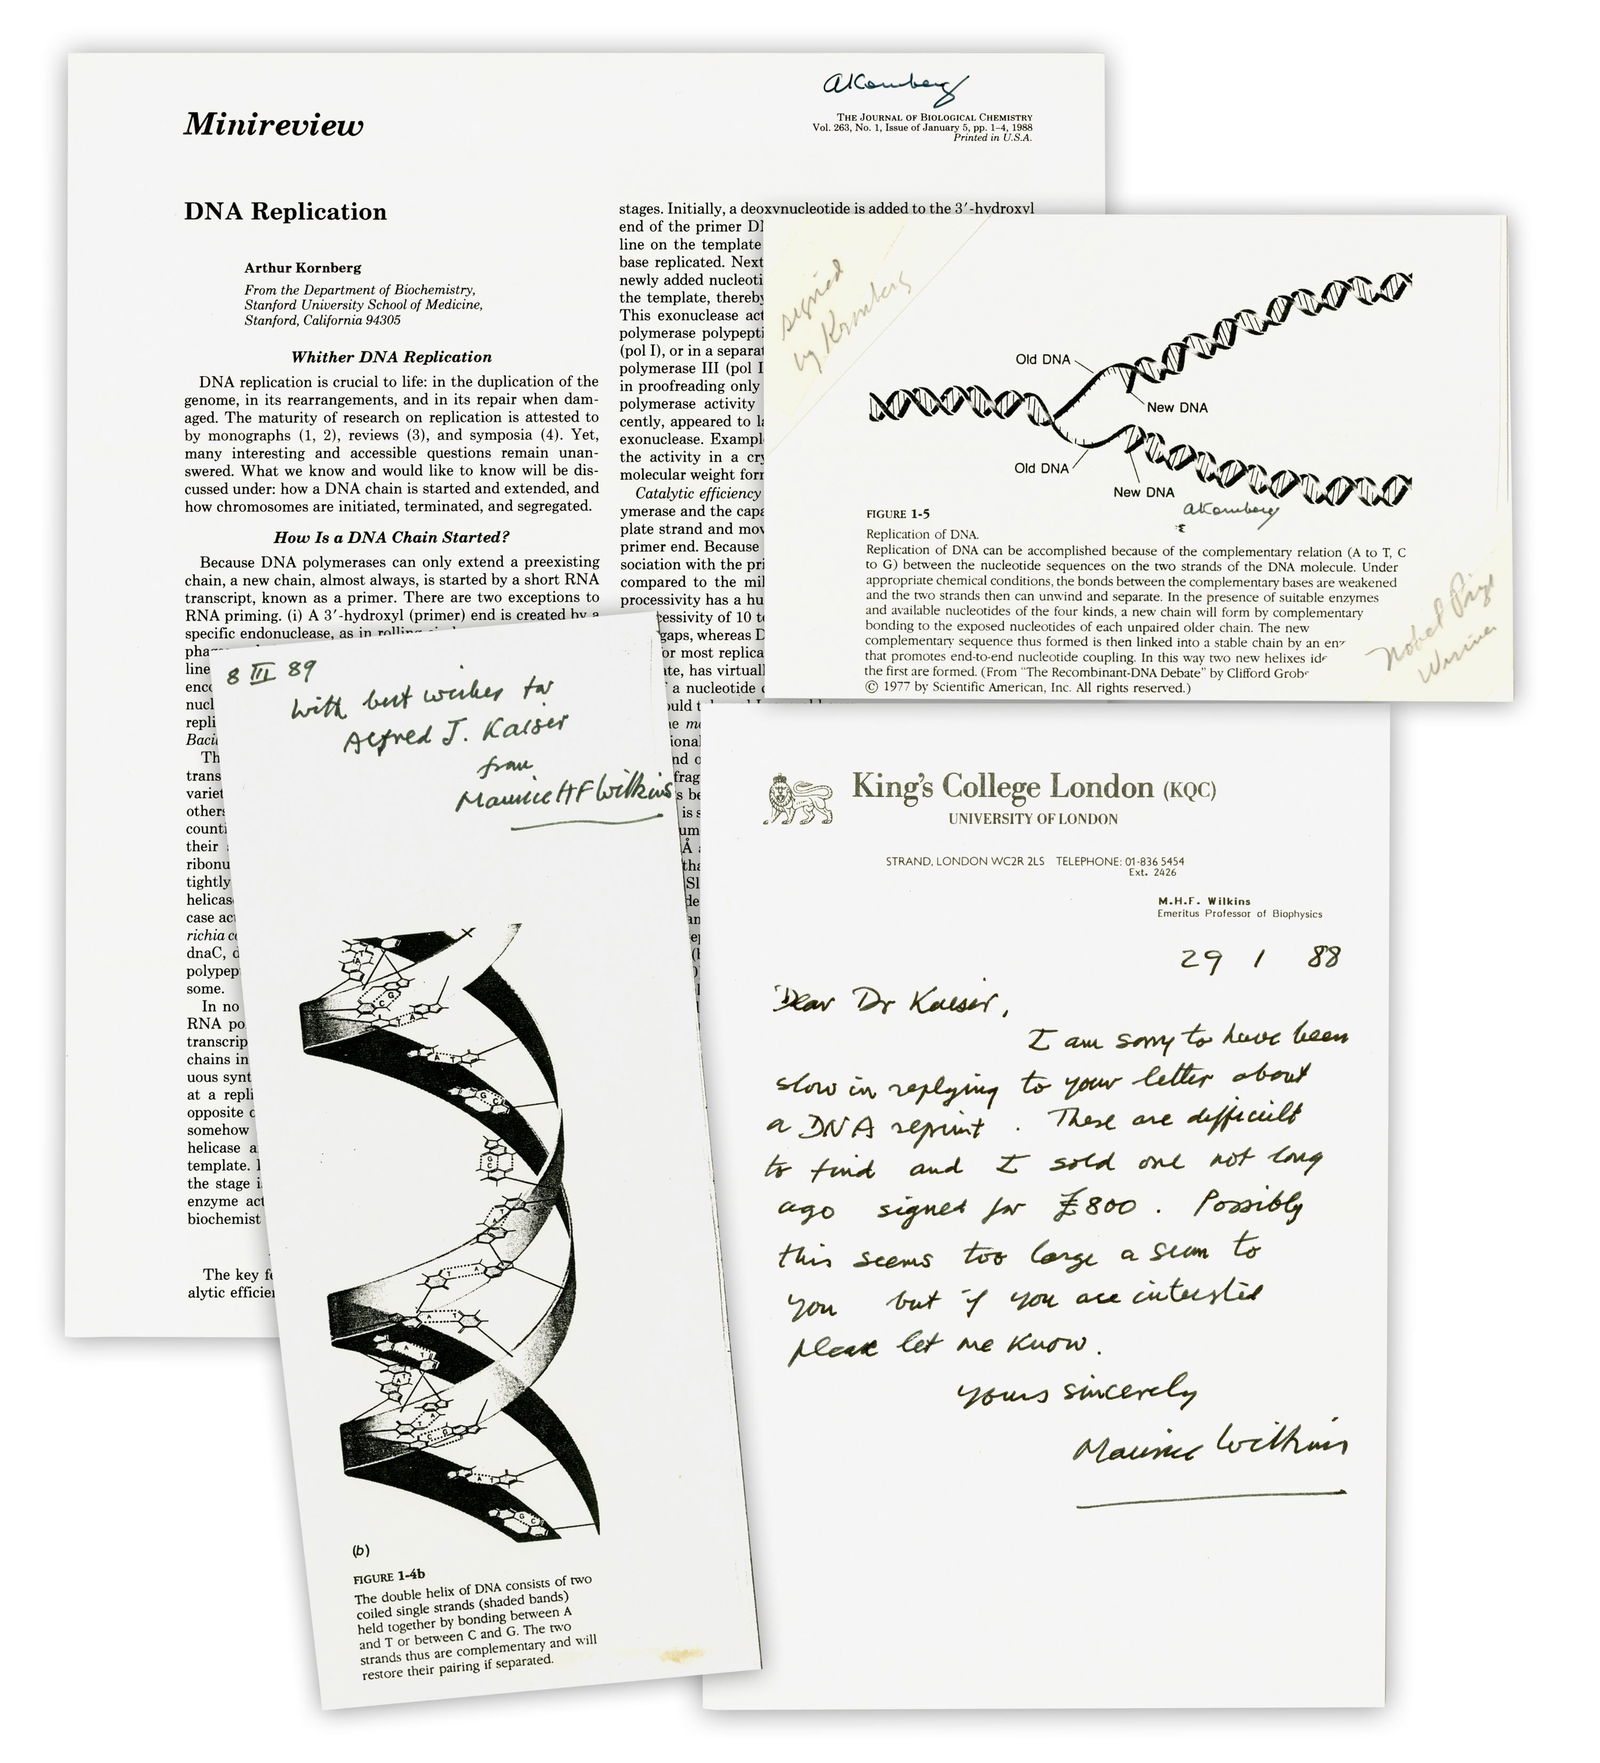 AKornberg
Minireview
THE JOURNAL OF BIOLOGICAL CHEMISTRY
Vol. 263, No. 1, Issue of January 5, pp. 1–4, 1988
Printed in U.S.A.
DNA Replication
Arthur Kornberg
From the Department of Biochemistry,
Stanford University School of Medicine,
Stanford, California 94305
Whither DNA Replication
DNA replication is crucial to life: in the duplication of the
genome, in its rearrangements, and in its repair when dam-
aged. The maturity of research on replication is attested to
by monographs (1, 2), reviews (3), and symposia (4). Yet,
many interesting and accessible questions remain unan-
swered. What we know and would like to know will be dis-
cussed under: how a DNA chain is started and extended, and
how chromosomes are initiated, terminated, and segregated.
How Is a DNA Chain Started?
Because DNA polymerases can only extend a preexisting
chain, a new chain, almost always, is started by a short RNA
transcript, known as a primer. There are two exceptions to
RNA priming. (i) A 3′-hydroxyl (primer) end is created by a
specific endonuclease, as in rolling
line
enco
nucl
repli
Baci
Th
trans
variet
others
counti
their
ribonu
tightly
helicas
case ac
richia c
dnaC, d
polypep
some.
In no
RNA po
transcrip
chains in
uous synt
at a repli
opposite o
somehow
helicase a
template.
the stage i
enzyme act
biochemist
The key fe
alytic efficien
stages. Initially, a deoxynucleotide is added to the 3′-hydroxyl
end of the primer DN
line on the template
base replicated. Next
newly added nucleoti
the template, thereby
This exonuclease act
polymerase polypepti
(pol I), or in a separat
polymerase III (pol I
in proofreading only
polymerase activity
cently, appeared to la
exonuclease. Example
the activity in a cry
molecular weight form
Catalytic efficiency
ymerase and the capa
plate strand and mov
primer end. Because
sociation with the pri
compared to the mil
processivity has a hu
cessivity of 10 to
gaps, whereas D
or most replica
ate, has virtuall
a nucleotide
signed
by Kronberg
Old DNA
New DNA
Old DNA
New DNA
AKornberg
FIGURE 1-5
Replication of DNA.
Replication of DNA can be accomplished because of the complementary relation (A to T, C
to G) between the nucleotide sequences on the two strands of the DNA molecule. Under
appropriate chemical conditions, the bonds between the complementary bases are weakened
and the two strands then can unwind and separate. In the presence of suitable enzymes
and available nucleotides of the four kinds, a new chain will form by complementary
bonding to the exposed nucleotides of each unpaired older chain. The new
complementary sequence thus formed is then linked into a stable chain by an enz
that promotes end-to-end nucleotide coupling. In this way two new helixes ide
the first are formed. (From "The Recombinant-DNA Debate" by Clifford Grobs
© 1977 by Scientific American, Inc. All rights reserved.)
Nobel Prize
Winner
8 III 89
With best wishes for
Alfred J. Kaiser
from
Maurice HF Wilkins
(b)
FIGURE 1-4b
The double helix of DNA consists of two
coiled single strands (shaded bands)
held together by bonding between A
and T or between C and G. The two
strands thus are complementary and will
restore their pairing if separated.
King's College London (KQC)
UNIVERSITY OF LONDON
STRAND, LONDON WC2R 2LS TELEPHONE: 01-836 5454
Ext. 2426
M.H.F. Wilkins
Emeritus Professor of Biophysics
29 1 88
Dear Dr Kaiser,
I am sorry to have been
slow in replying to your letter about
a DNA reprint. These are difficult
to find and I sold one not long
ago signed for £800. Possibly
this seems too large a sum to
you but if you are interested
please let me know.
Yours sincerely
Maurice Wilkins